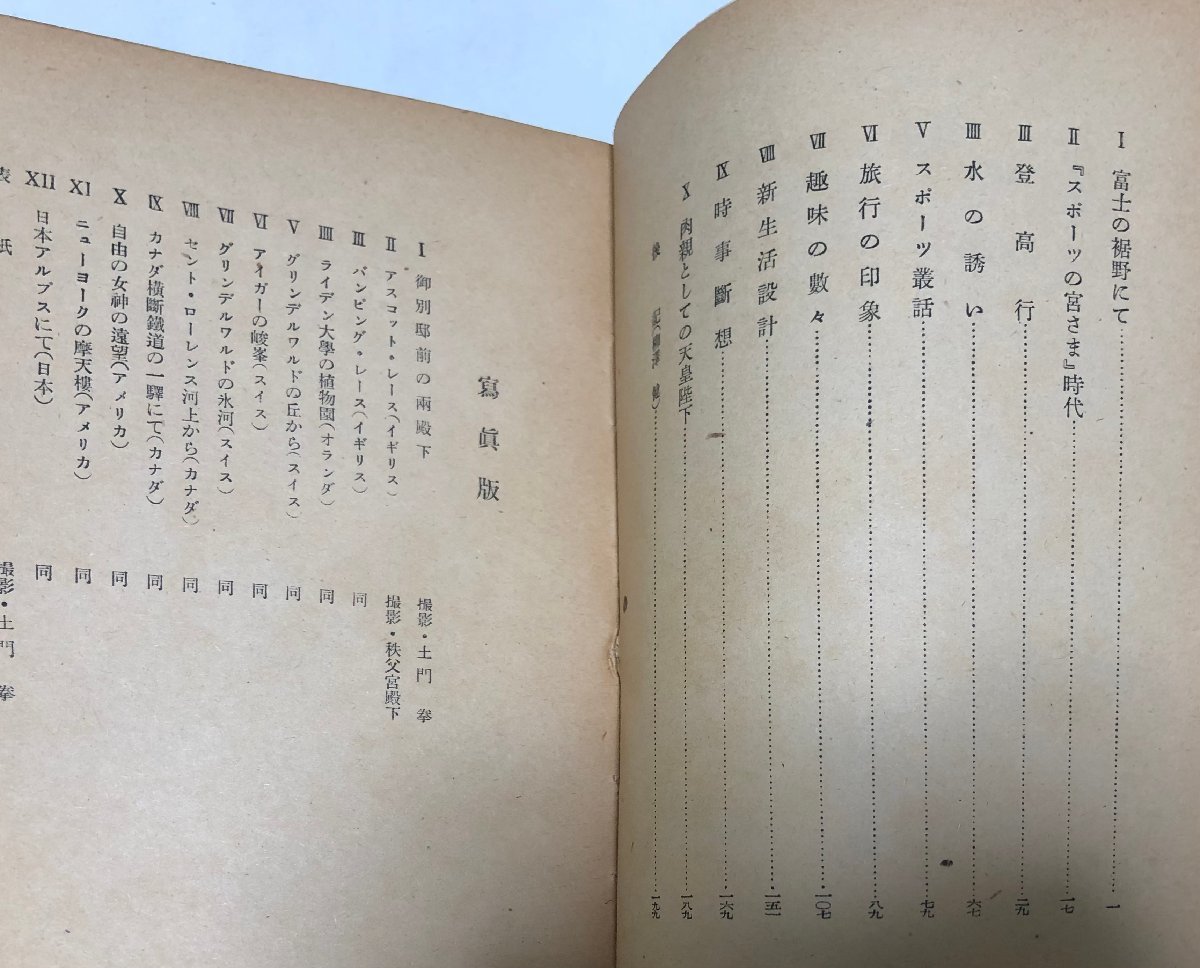 Ⅰ 富士の裾野にて……一
Ⅱ 『スポーツの宮さま』時代……一七
Ⅲ 登高行……二九
IIII 水の誘い……六七
Ⅴ スポーツ叢話……七九
Ⅵ 旅行の印象……八九
Ⅶ 趣味の數々……一〇七
Ⅷ 新生活設計……一五一
Ⅸ 時事斷想……一六九
Ⅹ 肉親としての天皇陛下……一八九
後記(柳澤健)……一九九
寫眞版
Ⅰ 御別邸前の兩殿下 撮影・土門拳
Ⅱ アスコット・レース(イギリス) 撮影・秩父宮殿下
Ⅲ バンピング・レース(イギリス) 同
IIII ライデン大學の植物園(オランダ) 同
Ⅴ グリンデルワルドの丘から(スイス) 同
Ⅵ アイガーの峻峯(スイス) 同
Ⅶ グリンデルワルドの氷河(スイス) 同
Ⅷ セント・ローレンス河上から(カナダ) 同
Ⅸ カナダ橫斷鐵道の一驛にて(カナダ) 同
Ⅹ 自由の女神の遠望(アメリカ) 同
Ⅺ ニューヨークの摩天樓(アメリカ) 同
Ⅻ 日本アルプスにて(日本) 同
表紙 撮影・土門拳